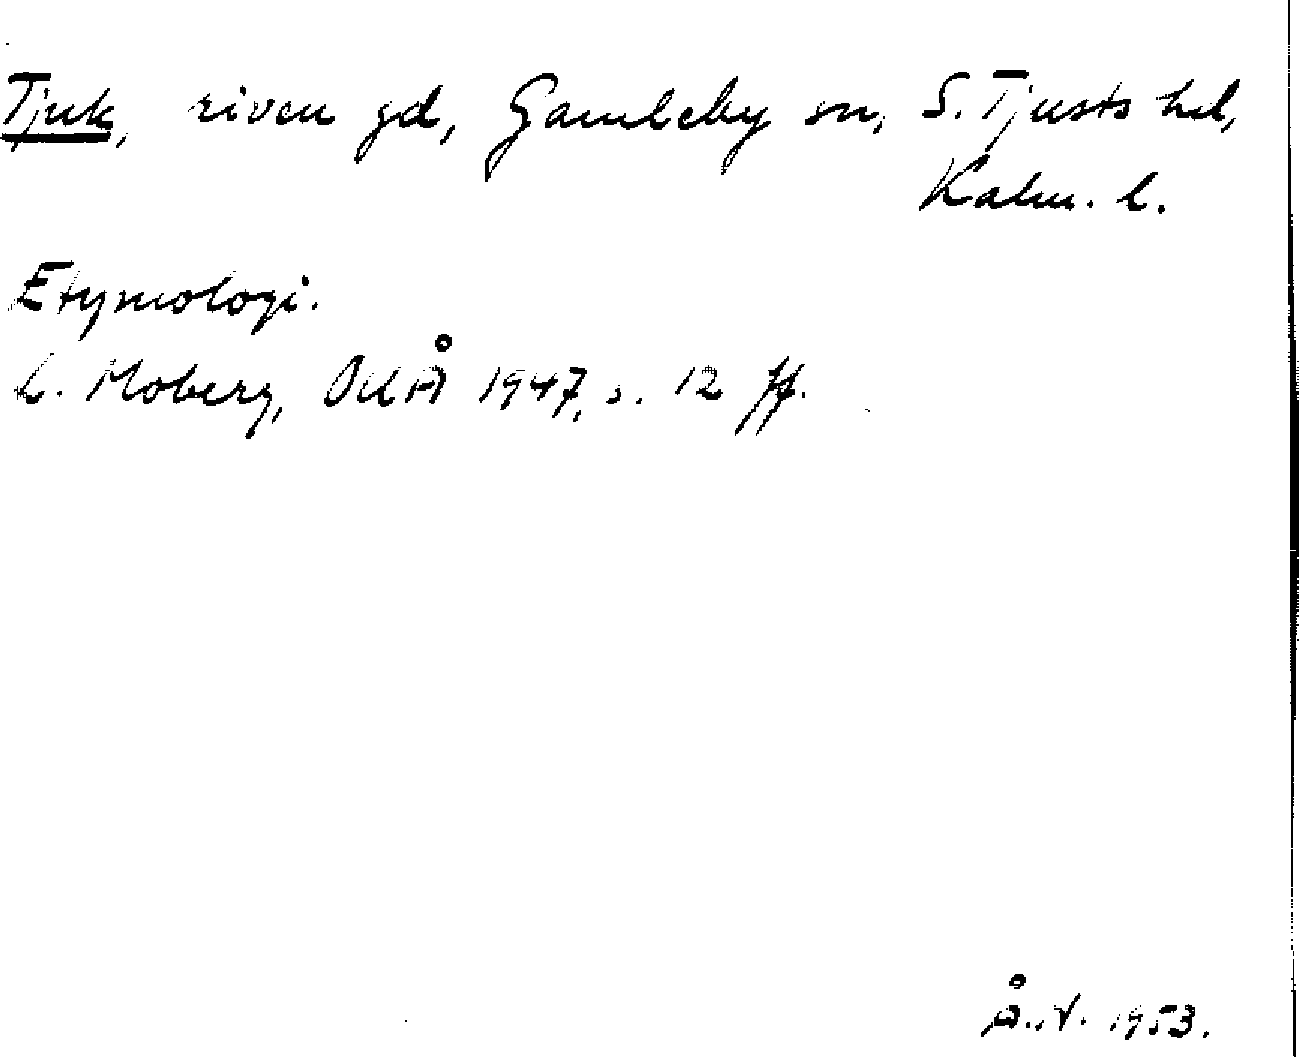 Tjuk, riven gd, Gamleby sn, S. Tjusts hd,
Kalm. l.
Etymologi.
L. Moberg, OUÅ 1947, s. 12 ff.
Å. V. 1953.